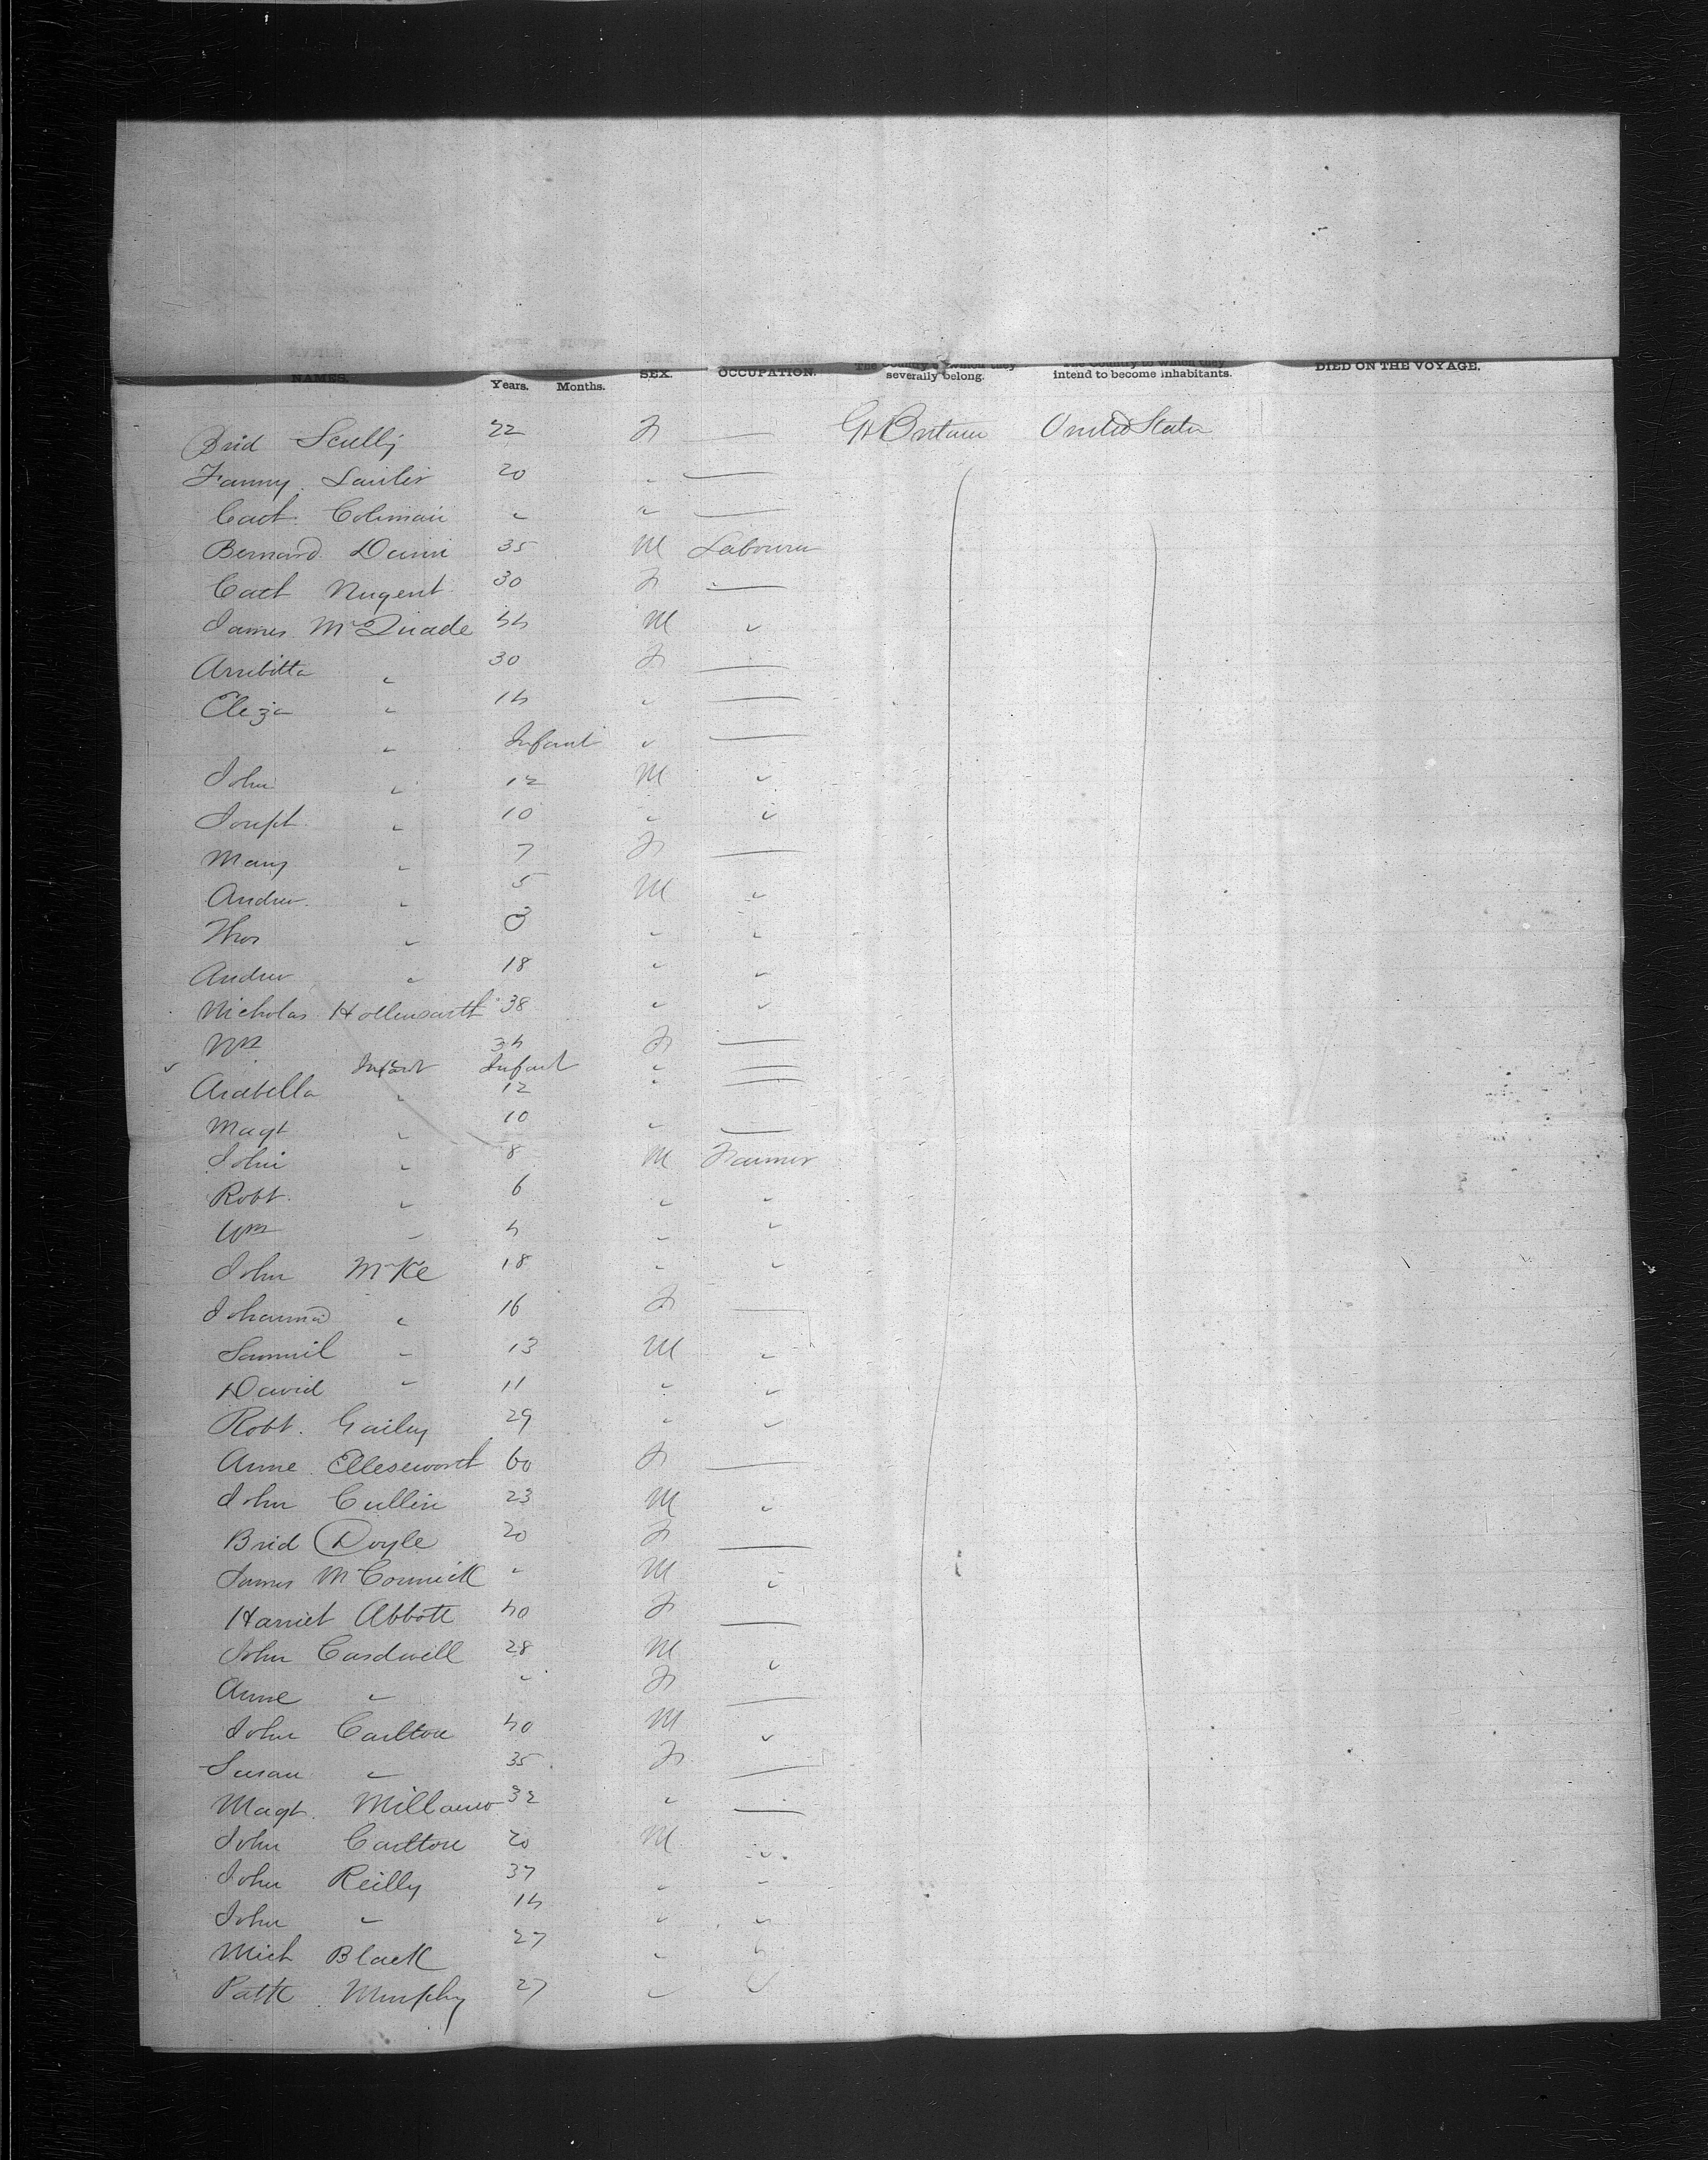 NAMES. Years. Months. SEX. OCCUPATION. The Country to which they severally belong. The Country to which they intend to become inhabitants. DIED ON THE VOYAGE.
Brid Scully 22 F — Gt Britain United States
Fanny 20 " —
Cath Coleman " " —
Bernard Dunn 35 M Labourer
Cath Nugent 30 F —
James McQuade 44 M "
Arribitta " 30 F —
Eliza " 14 " —
" Infant " —
John " 12 M "
Joseph " 10 " "
Mary " 7 F —
Andrew " 5 M "
Thos " 3 " "
Andrew " 18 " "
Nicholas Hollensworth 38 " "
Mrs 34 F —
Infant Infant " —
Arabella " 12 " —
Magt " 10 " —
John " 8 M Farmer
Robt. " 6 " "
Wm " 4 " "
John McKe 18 " "
Johanna " 16 F —
Samuel " 13 M "
David " 11 " "
Robt. Gailey 29 " "
Anne Ellesworth 60 F —
John Cullen 23 M "
Brid Doyle 20 F —
James McCormick " M "
Harriet Abbott 40 F —
John Cardwell 28 M "
Anne " " F —
John Carlton 40 M "
Susan " 35 F —
Magt. 32 " —
John Carlton 20 M "
John Reilly 37 " "
John " 14 " "
Mich Black 27 " "
Patk Murphy 27 " "